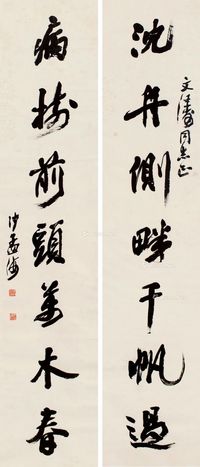 文 同志正
沈舟側畔千帆過
病樹前頭萬木春
沙孟海